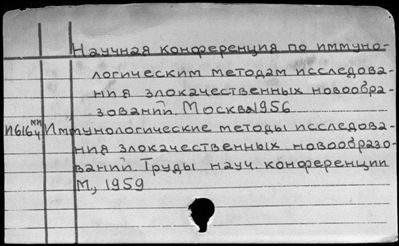 Научная конференция по иммуно-
логическим методам исследова-
ния злокачественных новообра-
зований. Москва 1956
И616ч МН Иммунологические методы исследова-
ния злокачественных новообразо-
ваний. Труды науч. конференции
М., 1959